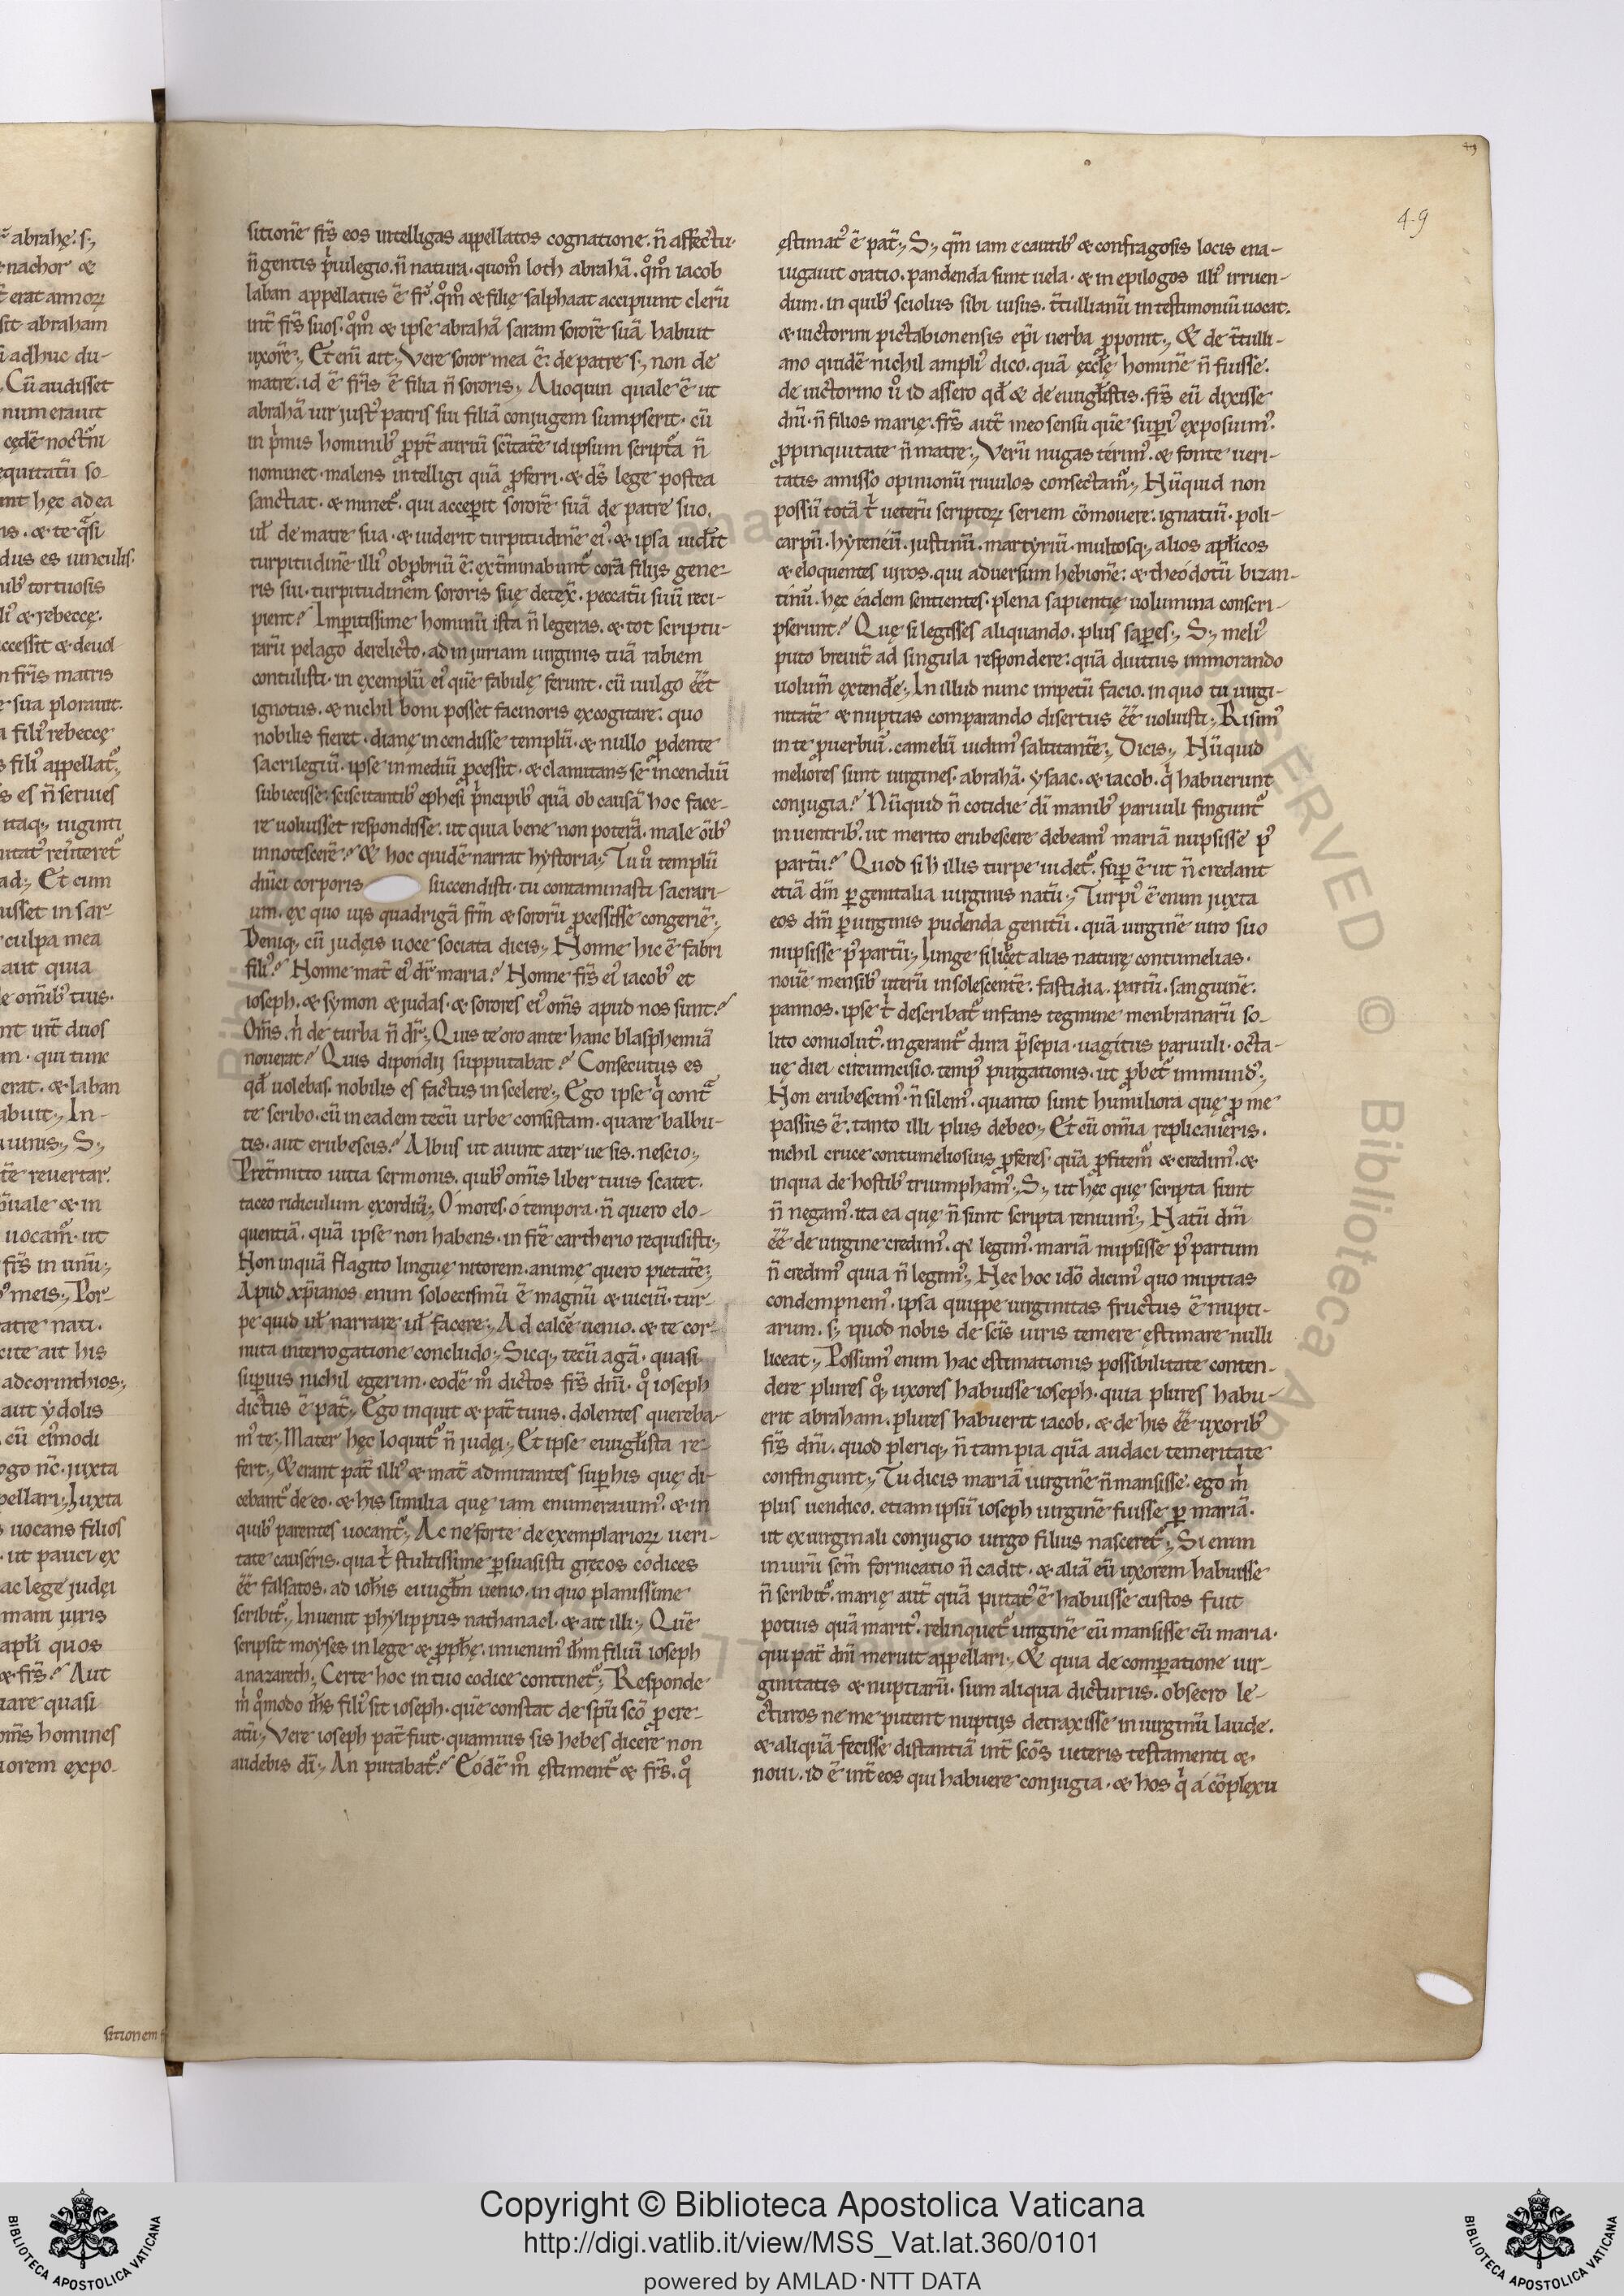 abrahę. s;,
nachor &
erat annoꝝ
sit abraham
adhuc du-
Cū audisset
numerauit
cędē noctn̄i
equitatū so-
unt hęc ad ea
& te
dus es uinculis.
tortuosis
& rebeccę.
ccessit & deuol
fr̄is matris
sua plorauit.
filiꝰ rebeccę
filiꝰ appellat᷑;,
es n̄ seruies
itaq; uiginti
ad;, Et cum
usset in sar-
culpa mea
aut quia
om̄ibꝰ tuis.
nt int̄ duos
qui tunc
erat. & laban
abuit;, In-
S;,
reuertar.
& in
uocam᷑. ut
fr̄s in unū;,
meis;, Por-
atre nati.
cite ait his
ad corinthios;,
aut ydolis
cū eiꝰmodi
ogo nc̄. juxta
pellari;, Juxta
uocans filios
ut pauci ex
ac lege judęi
mam uiris
apłi quos
& fr̄s? Aut
iare quasi
om̄s homines
iorem expo-
sitionem
sitionē fr̄s eos intelligas appellatos cognatione. n̄ affectu.
n̄ gentis pͥuilegio. n̄ natura. quom̊ loth abrahā. q̊m̊ iacob
laban appellatus ē fr̄. q̊m̊ & filię salphaat accipiunt clerū
int̄ fr̄s suos. q̊m̊ & ipse abrahā saram sororē suā habuit
uxorē;, Et eni͂ ait;, Vere soror mea ē. de patre s;, non de
matre. id ē fr̄is ē filia n̄ sororis;, Alioquin quale ē ut
abrahā uir just᷒ patris sui filiā conjugem sumpserit. cū
in pͥmis hominibꝰ ꝓpt̄ auriū sc̄itatē idipsum script᷑a n̄
nominet. malens intelligi quā ꝓferri. & ds̄ lege postea
sanctiat. & minet᷑. qui acceꝑit sororē suā de patre suo.
uł de matre sua. & uiderit turpitudinē eiꝰ. & ipsa uid̵it
turpitudinē illiꝰ obꝓbriū ē. ext̄minabunt᷑ corā filijs gene-
ris sui. turpitudinem sororis suę detex᷒. peccatū suū reci-
pient? Imꝑitissime hominū ista n̄ legeras. & tot scriptu-
rarū pelago derelicto. ad injuriam uirginis tuā rabiem
contulisti. in exemplū eiꝰ quē fabulę ferunt. cū uulgo eēt
ignotus. & nichil boni posset facinoris excogitare. quo
nobilis fieret. dianę incendisse templū. & nullo ꝓdente
sacrilegiū. ipse in mediū ꝓcessit. & clamitans sē incendiū
subiecisse. sciscitantibꝰ ephesi pͥncipibꝰ quā ob causā hoc face-
re uoluisset respondisse. ut quia bene non poterā. male oībꝰ
innotescerē? & hoc quidē narrat hystoria;, Tu uͦ templū
dn̄ici corporis succendisti. tu contaminasti sacrari-
um. ex quo uis quadrigā fr̄m & sororū ꝓcessisse congeriē;,
Deniq; cū judęis uoce sociata dicis;, Nonne hic ē fabri
filiꝰ? Nonne mat̄ eiꝰ dr̄ maria? Nonne fr̄s eiꝰ iacobꝰ et
ioseph. & symon & judas. & sorores eiꝰ om̄s apud nos sunt?
Om̄s. nͥ de turba n̄ dr̄;, Quis te oro ante hanc blasphemiā
nouerat? Quis dipondij supputabat? Consecutus es
qd̵ uolebas. nobilis es factus in scelere;, Ego ipse qͥ cont̄
te scribo. cū in eadem tecū urbe consistam. quare balbu-
tis. aut erubescis? Albus ut aiunt ater ue sis. nescio;,
Pret̄mitto uitia sermonis. quibꝰ om̄is liber tuus scatet.
taceo ridiculum exordiū;, O mores. o tempora. n̄ quero elo-
quentiā. quā ipse non habens. in fr̄e cartherio requisisti;,
Non inquā flagito linguę nitorem. animę quero pietatē;,
Apud xp̄ianos enim soloecismū ē magnū & uiciū. tur-
pe quid uł narrare uł facere;, Ad calcē uenio. & te cor-
nuta interrogatione concludo;, Sicq; tecū agā. quasi
suꝑius nichil egerim. eodē m̊ dictos fr̄s dn̄i. q̊ ioseph
dictus ē pat̄;, Ego inquit & pat̄ tuus. dolentes quereba-
mꝰ te;, Mater hęc loquit᷑ n̄ judęi;, Et ipse euuigłista re-
fert;, & erant pat̄ illiꝰ & mat̄ admirantes suꝑ his quę di-
cebant᷑ de eo. & his similia quę iam enumerauimꝰ. & in
quibꝰ parentes uocant᷑;, Ac ne forte de exemplarioꝝ ueri-
tate causēris. qua tͥ stultissime ꝑsuasisti gręcos codices
eē falsatos. ad ioħis euuigłm uenio. in quo planissime
scribit᷑;, Inuenit phylippus nathanael. & ait illi;, Quē
scripsit moyses in lege & ꝓpħę. inuenimꝰ iħm filiū ioseph
a nazareth;, Certe hoc in tuo codice continet᷑;, Responde
mͥ q̊modo iħs filiꝰ sit ioseph. quē constat de sp̄u sc̄o ꝓcre-
atū;, Vere ioseph pat̄ fuit. quamuis sis hebes dicere non
audebis dī;, An putabat᷑? Eodē m̊ ęstiment᷑ & fr̄s. q̊
4-9
ęstimatꝰ ē pat̄;, S;, qm̄ iam e cautibꝰ & confragosis locis ena-
uigauit oratio. pandenda sunt uela. & in epilogos illiꝰ irruen-
dum. in quibꝰ sciolus sibi uisus. t̄tullianū in testimoniū uocat.
& uictorini pictabionensis ep̄i uerba ꝓponit;, & de t̄tulli-
ano quidē nichil ampliꝰ dico. quā ęccłę hominē n̄ fuisse.
de uictorino uͦ id assero qd̵ & de euuigłistis. fr̄s eū dixisse
dn̄i. n̄ filios marię. fr̄s aut̄ meo sensu quē suꝑiꝰ exposuimꝰ.
ꝓpinquitate n̄ matre;, Verū nugas t́erimꝰ. & fonte ueri-
tatis amisso opinionū riuulos consectam᷑;, Nūquid non
possū totā tͥ ueterū scriptoꝝ seriem cōmouere. ignatiū. poli-
carpū. hyreneū. justinū. martyriū. multosq; alios apłicos
& eloquentes uiros. qui aduersum hebionē. & theodotū bizan-
tinū. hęc eadem sentientes. plena sapientię uolumina conscri-
pserunt? Quę si legisses aliquando. plus saꝑes;, S;, meliꝰ
puto breuit̄ ad singula respondere. quā diutius immorando
uolum̄ extend̵e;, In illud nunc impetū facio. in quo tu uirgi-
nitatē & nuptias comparando disertus eē uoluisti;, Risimꝰ
in te ꝓuerbiū. camelū uidimꝰ saltitantē;, Dicis;, Nūquid
meliores sunt uirgines. abrahā. ysaac. & iacob. qͥ habuerunt
conjugia? Nūquid n̄ cotidie dī manibꝰ paruuli fingunt᷑
in uentribꝰ. ut merito erubescere debeamꝰ mariā nupsisse pꝰ
partū? Quod si ħ illis turpe uidet᷑. suꝑ ē ut n̄ credant
etiā dm̄ ꝑ genitalia uirginis natū;, Turpiꝰ ē enim juxta
eos dm̄ ꝑ uirginis pudenda genitū. quā uirginē uiro suo
nupsisse pꝰ partū;, Junge si licet alias naturę contumelias.
nouē mensibꝰ uterū insolescentē. fastidia. partū. sanguinē.
pannos. ipse tͥ describat᷑ infans tegmine menbranarū so-
lito conuolutꝰ. ingerant᷑ dura p̄sepia. uagitus paruuli. octa-
uę diei circumcisio. tempꝰ purgationis. ut ꝓbet᷑ immundꝰ;,
Non erubescimꝰ. n̄ silemꝰ. quanto sunt humiliora quę ꝑ me
passus ē. tanto illi plus debeo;, Et cū om̄ia replicaueris.
nichil cruce contumeliosius ꝓferes. quā ꝓfitem᷑ & credimꝰ. &
in qua de hostibꝰ triumphamꝰ;, S;, ut hęc quę scripta sunt
n̄ negamꝰ. ita ea quę n̄ sunt scripta renuimꝰ;, Natū dm̄
eē de uirgine credimꝰ. q̨ legimꝰ. mariā nupsisse pꝰ partum
n̄ credimꝰ quia n̄ legimꝰ;, Nec hoc idō dicimꝰ quo nuptias
condempnemꝰ. ipsa quippe uirginitas fructus ē nupti-
arum. s; quod nobis de sc̄is uiris temere ęstimare nulli
liceat;, Possumꝰ enim hac estimationis possibilitate conten-
dere plures q̊; uxores habuisse ioseph. quia plures habu-
erit abraham. plures habuerit iacob. & de his eē uxoribꝰ
fr̄s dn̄i. quod pleriq; n̄ tam pia quā audaci temeritate
confingunt;, Tu dicis mariā uirginē n̄ mansisse. ego mͥ
plus uendico. etiam ipsū ioseph uirginē fuisse ꝑ mariā.
ut ex uirginali conjugio uirgo filius nasceret᷑;, Si enim
in uirū sc̄m fornicatio n̄ cadit. & aliā eū uxorem habuisse
n̄ scribit᷑. marię aut̄ quā putatꝰ ē habuisse custos fuit
potius quā maritꝰ. relinquet᷑ uirginē eū mansisse cū maria.
qui pat̄ dn̄i meruit appellari;, & quia de comꝑatione uir-
ginitatis & nuptiarū. sum aliqua dicturus. obsecro le-
cturos ne me putent nuptijs detraxisse in uirginū laude.
& aliquā fecisse distantiā int̄ sc̄os ueteris testamenti &
noui. id ē int̄ eos qui habuere conjugia. & hos qͥ a cōplexu
Copyright © Biblioteca Apostolica Vaticana
http://digi.vatlib.it/view/MSS_Vat.lat.360/0101
powered by AMLAD·NTT DATA
BIBLIOTECA APOSTOLICA VATICANA
BIBLIOTECA APOSTOLICA VATICANA